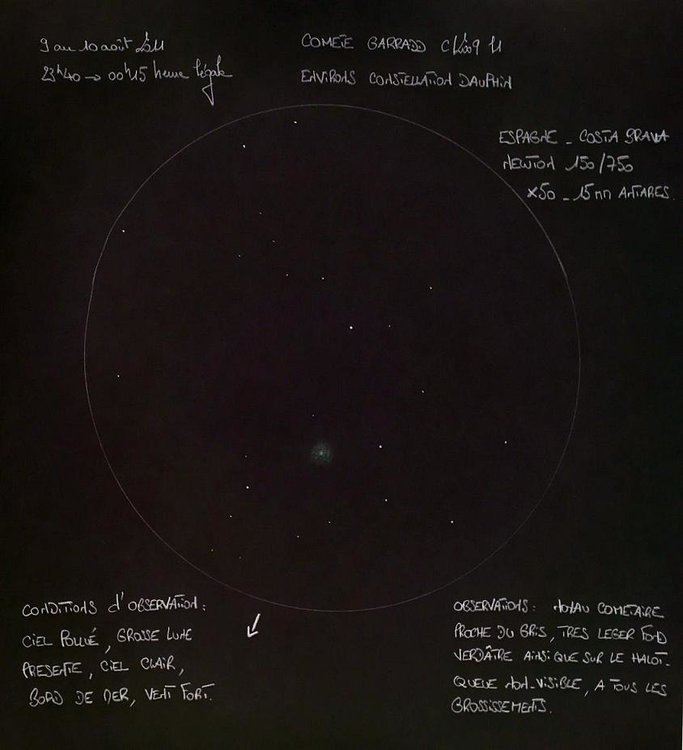 9 au 10 août 2011
23h40 → 00h15 heure légale
COMÈTE GARRADD C/2009 P1
ENVIRONS CONSTELLATION DAUPHIN
ESPAGNE - COSTA BRAVA
NEWTON 150/750
×50 - 15mm ANTARES
CONDITIONS d'OBSERVATION :
CIEL POLLUÉ, GROSSE LUNE
PRESENTE, CIEL CLAIR,
BORD DE MER, VENT FORT.
OBSERVATIONS : NOYAU COMETAIRE
PROCHE DU GRIS, TRES LEGER FOND
VERDÂTRE AINSI QUE SUR LE HALO.
QUEUE NON-VISIBLE, A TOUS LES
GROSSISSEMENTS.